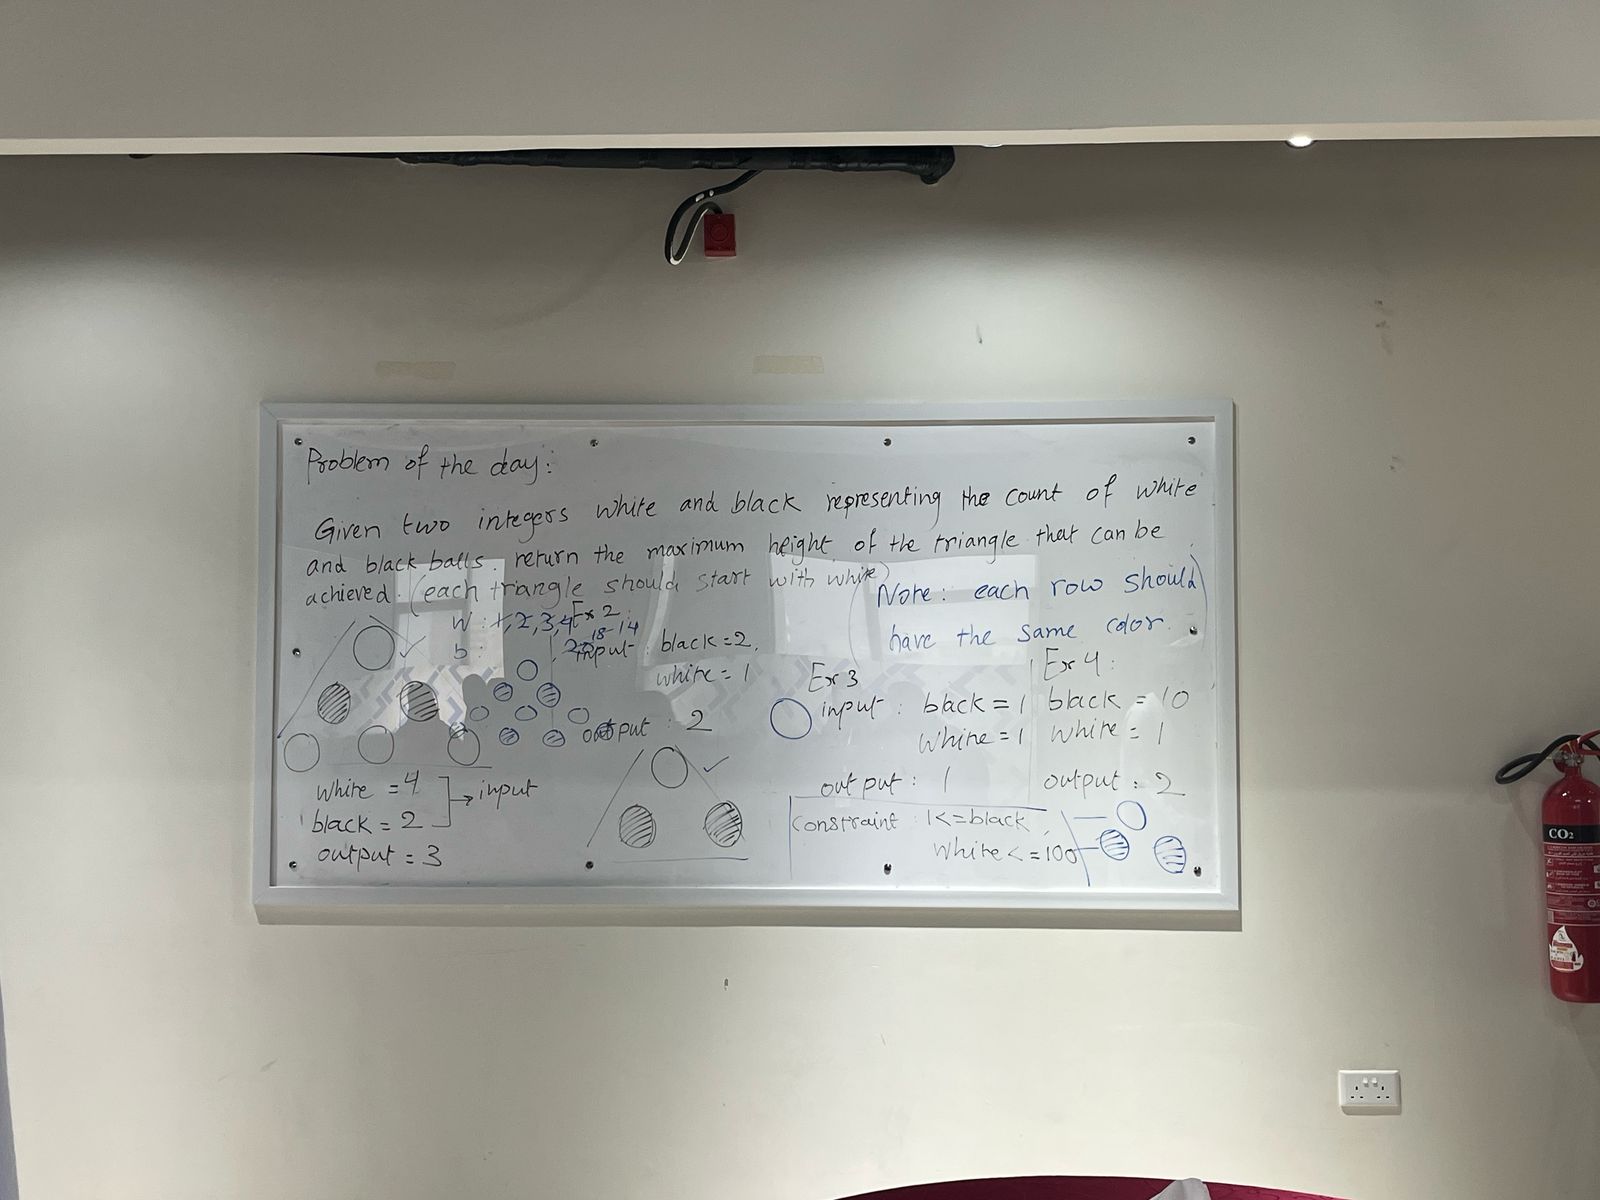 Problem of the day:
Given two integers white and black representing the count of white
and black balls. return the maximum height of the triangle that can be
achieved. (each triangle should start with white)
(Note: each row should
have the same color.)
w : 1, 2, 3, 4
b :
18-14
white = 4
black = 2
→ input
output = 3
Ex 2 :
input : black = 2,
white = 1
output : 2
Ex 3
input : back = 1
white = 1
out put : 1
Ex 4 :
black = 10
white = 1
output : 2
constraint : 1<=black,
white<=100
CO2